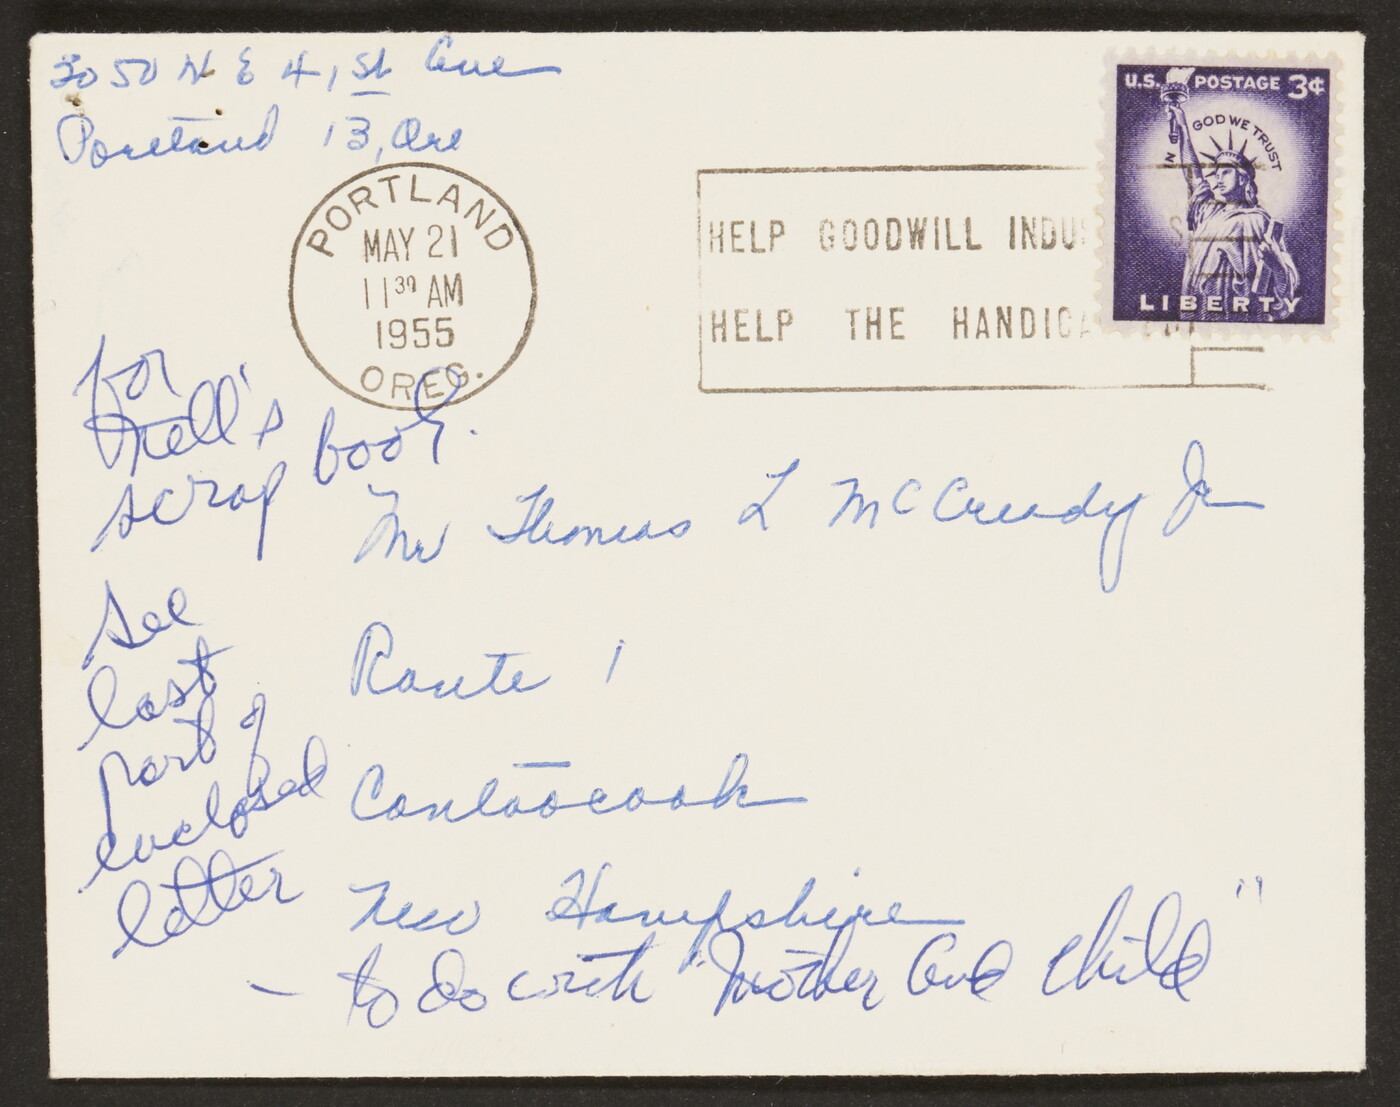 3050 N E 41, st Ave
Portland 13, Ore
U.S. POSTAGE 3¢
IN GOD WE TRUST
LIBERTY
PORTLAND
MAY 21
11 30 AM
1955
OREG.
HELP GOODWILL INDUS
HELP THE HANDICA
for
Nell's
scrap book.
Mr Thomas L McCready Jr
see
last
part of
enclosed
letter
Route 1
Contoocook
New Hampshire
— to do with "Mother and Child"